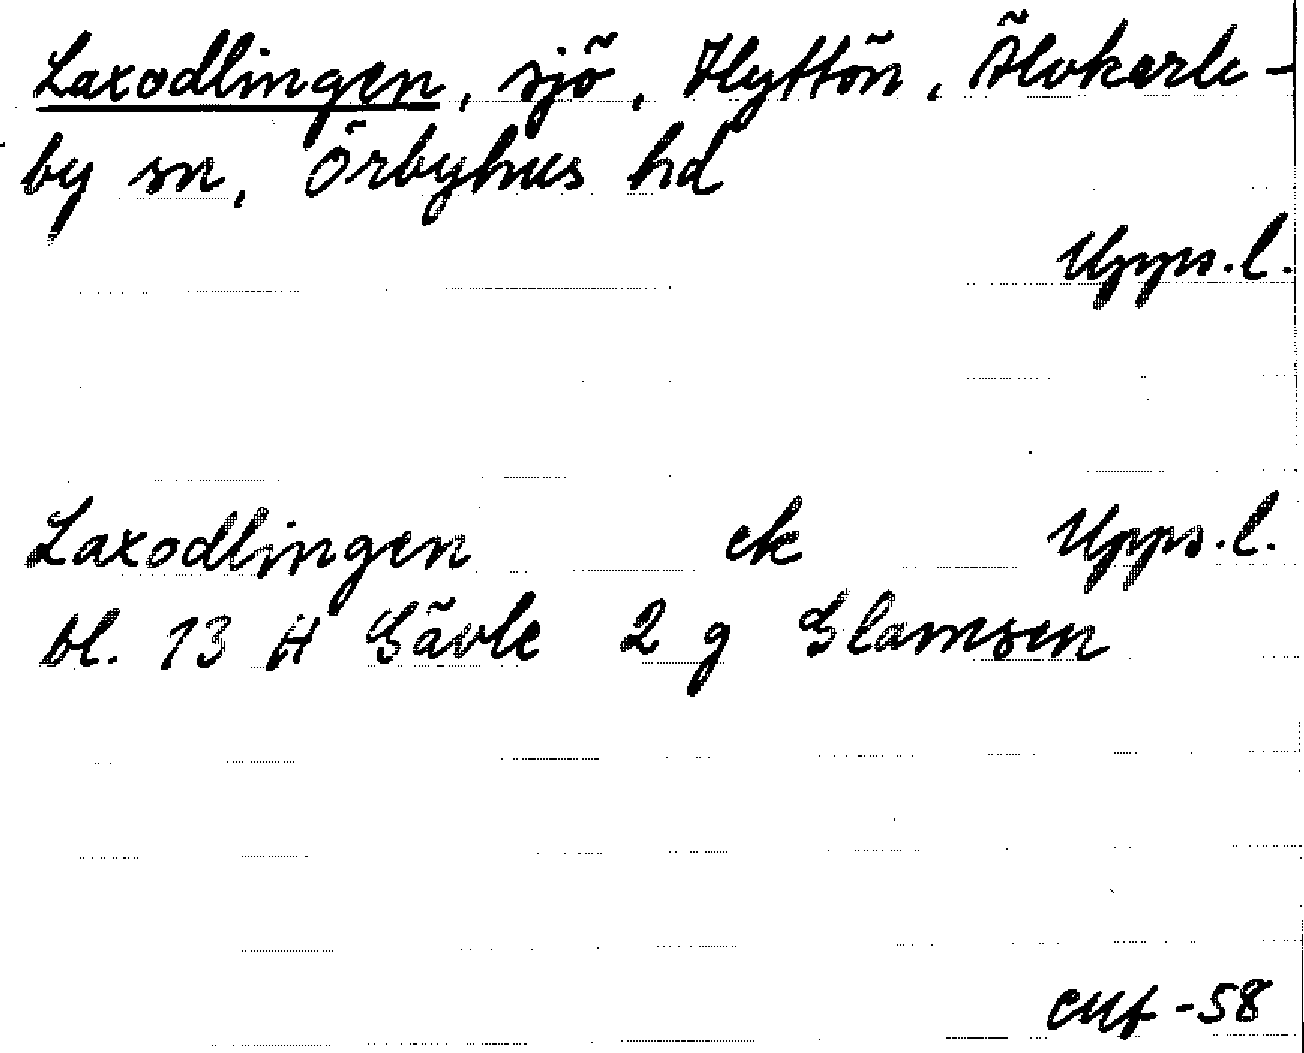 Laxodlingen, sjö, Hyttön, Älvkarle-
by sn, Örbyhus hd
Upps.l.
Laxodlingen ek Upps.l.
bl. 13 H Gävle 2 g Glamsen
-58